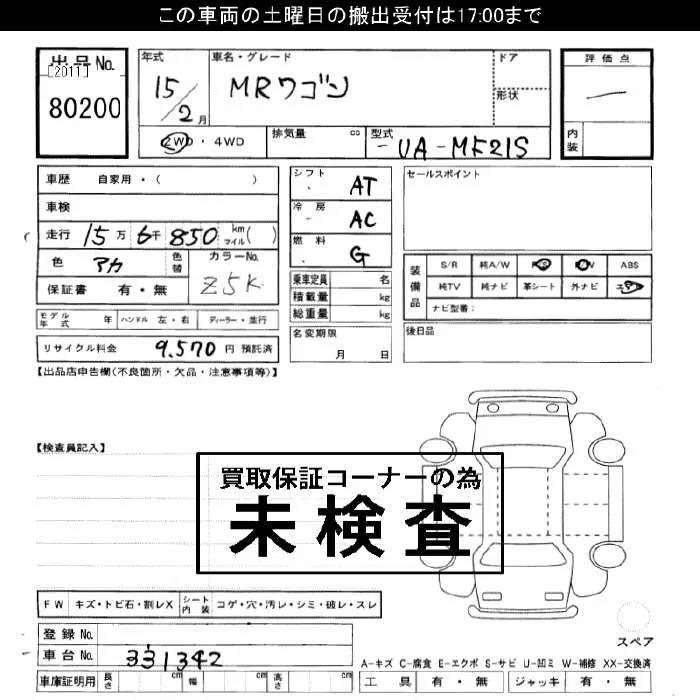 この車両の土曜日の搬出受付は17:00まで
出品No.
[2011]
80200
年式
15/2月
車名・グレード
MRワゴン
ドア
形状
評価点
—
内装
2WD・4WD
排気量 cc
型式
UA-MF21S
車歴 自家用・( )
車検
走行 15万6千850 km マイル( )
色 アカ 色替
カラーNo.
Z5K
保証書 有・無
モデル年式 年 ハンドル 左・右 ディーラー・並行
リサイクル料金 9,570円 預託済
シフト AT
冷房 AC
燃料 G
乗車定員 名
積載量 kg
総重量 kg
名変期限
月 日
セールスポイント
装備品
S/R 純A/W PS PW ABS
純TV 純ナビ 革シート 外ナビ
ナビ型番:
後日品
【出品店申告欄(不良箇所・欠品・注意事項等)】
【検査員記入】
買取保証コーナーの為
未検査
FW キズ・トビ石・割レX シート内装 コゲ・穴・汚レ・シミ・破レ・スレ
登録No.
車台No. 331342
車庫証明用 長さ cm 幅 cm 高さ cm
スペア
A-キズ C-腐食 E-エクボ S-サビ U-凹ミ W-補修 XX-交換済
工具 有・無 ジャッキ 有・無